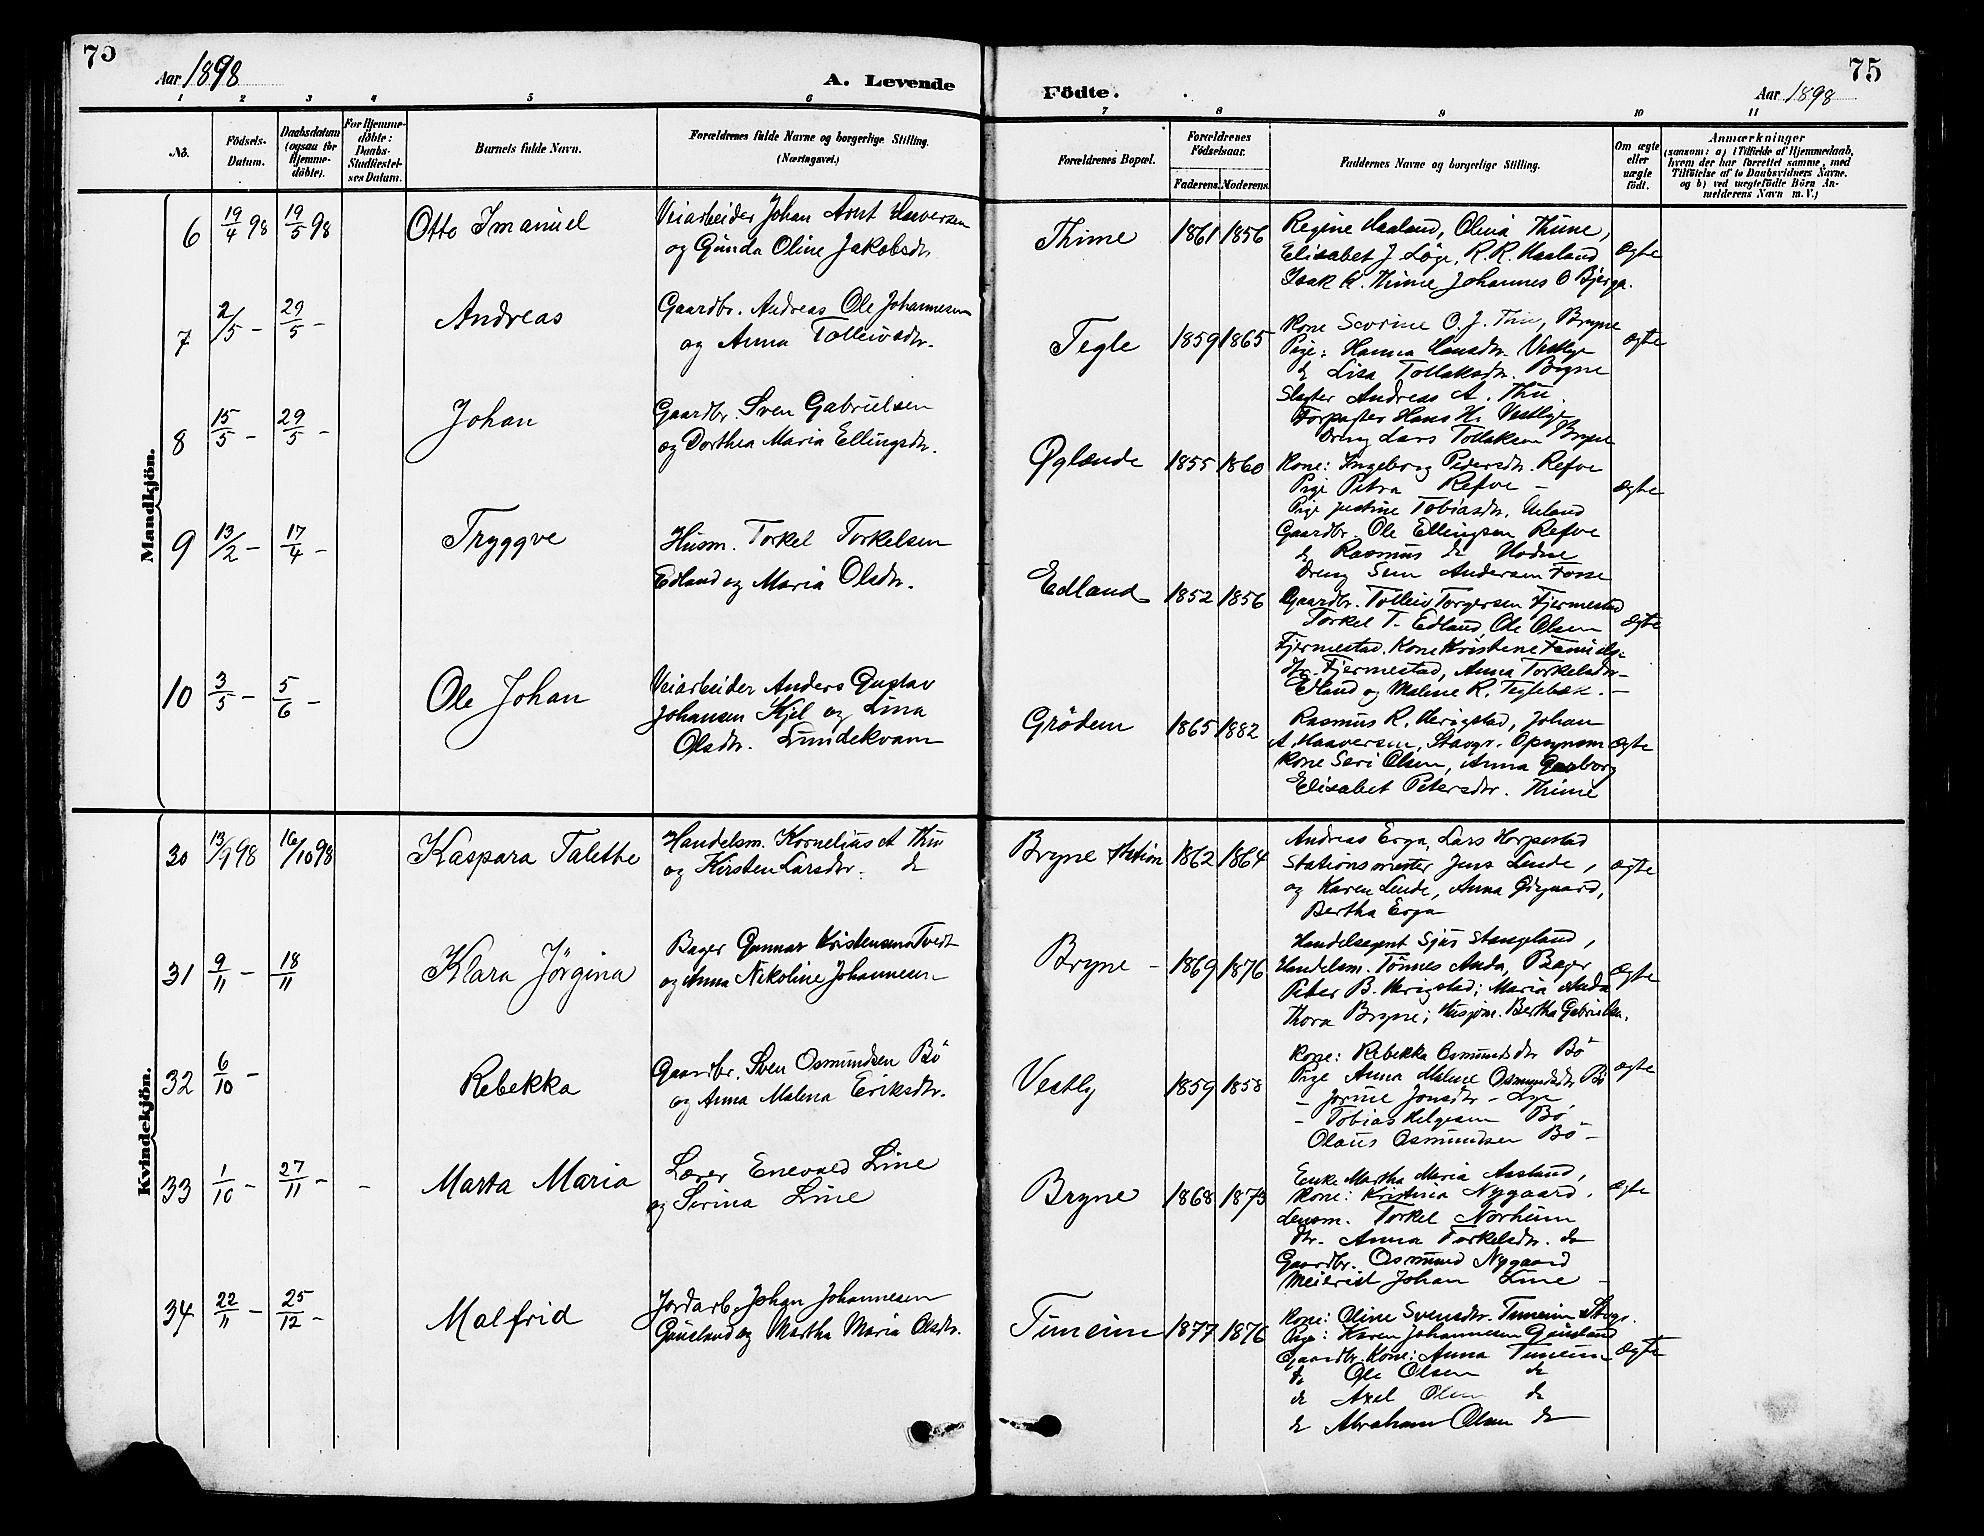 75
Aar 1898
A. Levende
1 2 3 4 5 6
No.
Födsels-
Datum.
Daabsdatum
(ogsaa for
Hjemme-
döbte).
For Hjemme-
döbte:
Daabs-
Stadfæstel-
ses Datum.
Barnets fulde Navn.
Forældrenes fulde Navne og borgerlige Stilling.
(Næringsvei.)
Mandkjön.
6 19/4 98 19/5 98 Otto Imanuel
Veiarbeider Johan Arnt Haversen
og Gunda Oline Jakobsdtr
7 2/5 – 29/5 – Andreas
Gaardbr. Andreas Ole Johannesen
og Anna Tolleivsdtr.
8 15/5 – 29/5 – Johan
Gaardbr. Sven Gabrielsen
og Dorthea Maria Ellingsdtr.
9 13/2 – 17/4 – Tryggve
Husm. Torkel Torkelsen
Edland og Maria Olsdtr.
10 3/5 – 5/6 – Ole Johan
Veiarbeider Anders Gustav
Johansen Kjel og Lina
Olsdtr. Lundekvam
Kvindekjön.
30 13/9 98 16/10 98 Kaspara Talette
Handelsm. Kornelius A Thu
og Kirsten Larsdtr. do
31 9/11 – 18/11 Klara Jörgina
Bager Gunnar Kristensen Tvedt
og Anna Nikoline Johannesen
32 6/10 – Rebekka
Gaardbr. Sven Osmundsen Bö
og Anna Malena Eriksdtr.
33 1/10 – 27/11 – – Marta Maria
Lærer Enevald Line
og Serina Line
34 22/11 – 25/12 – Malfrid
Jordarb. Johan Johannesen
og Martha Maria Olsdtr.
75
Aar 1898
Födte.
7 8 9 10 11
Forældrenes Bopæl.
Forældrenes
Födselsaar.
Faderens. Moderens.
Faddernes Navne og borgerlige Stilling.
Om ægte
eller
uægte
födt.
Anmærkninger
(saasom: a) i Tilfælde af Hjemmedaab,
hvem der har forrettet samme, med
Tilföielse af to Daabsvidners Navne.
og b) ved uægtefödte Börn An-
melderens Navn m. V.)
Thime 1861 1856 ægte
Regine Haaland, Olina Thime,
Elisabet J Löge, R. R. Haaland
Isak K. Thime Johannes O Bjerga.
Tegle 1859 1865 ægte
Kone Serine O. J. Thu, Bryne
Pige: Hanna Hansdtr. Vestly
do Lisa Tollaksdtr. Bryne
Slagter Andreas A. Thu.
Forpagter Hans H. Vestly
Dreng Lars Tollaksen Bryne
Øglænde 1855 1860 ægte
Kone: Ingeborg Pedersdtr. Refve
Pige Petra Refve –
Pige Justine Tobiasdtr.
Gaardbr. Ole Ellingsen Refve
do Rasmus do
Dreng Sven Andersen Fosse
Edland 1852 1856 ægte
Gaardbr. Tolleiv Torgersen Fjermestad
Torkel T. Edland, Ole Olsen
Fjermestad. Kone Kristene
dtr. Fjermestad, Anna Torkelsdtr
Edland og Malene R. Teglebæk. –
Grödem 1865 1882 ægte
Rasmus R. Herigstad, Johan
A Haaversen, Stavgr. Opsynsm
Kone Seri Olsen, Anna Garborg
Elisabet Petersdtr. Thime
Bryne station 1862 1864 ægte
Andreas Erga, Lars Horpestad
Stationsmester Jens Lende,
og Karen Lende, Anna
Bertha Erga
Bryne – 1869 1876 ægte
Handelsagent Sjur Stangeland,
Handelsm. Tönnes Anda, Bager
Peter B. Herigstad; Maria Anda
Thora Bryne; Husjom. Bertha Gabrielsen.
Vestly 1859 1858 ægte
Kone: Rebekka Osmundsdtr Bö
Pige Anna Malene Osmundsdtr Bö
– Jorine Jonsdtr – Lye
– Tobias Helgesen Bö
Olaus Osmundsen Bö –
Bryne 1868 1873 ægte
Enke Martha Maria Aasland,
Kone: Kristina Nygaard,
Lensm. Torkel Norheim
dtr. Anna Torkelsdtr. do
Gaardbr. Osmund Nygaard
Meierist Johan Line –
Tuneim 1877 1876 ægte
Kone: Oline Svensdtr. Tuneim
Pige: Karen Johannesen
Gaardbr. Kone: Anna Tuneim
do Ole Olsen do
do Axel Olsen do
do Abraham Olsen do